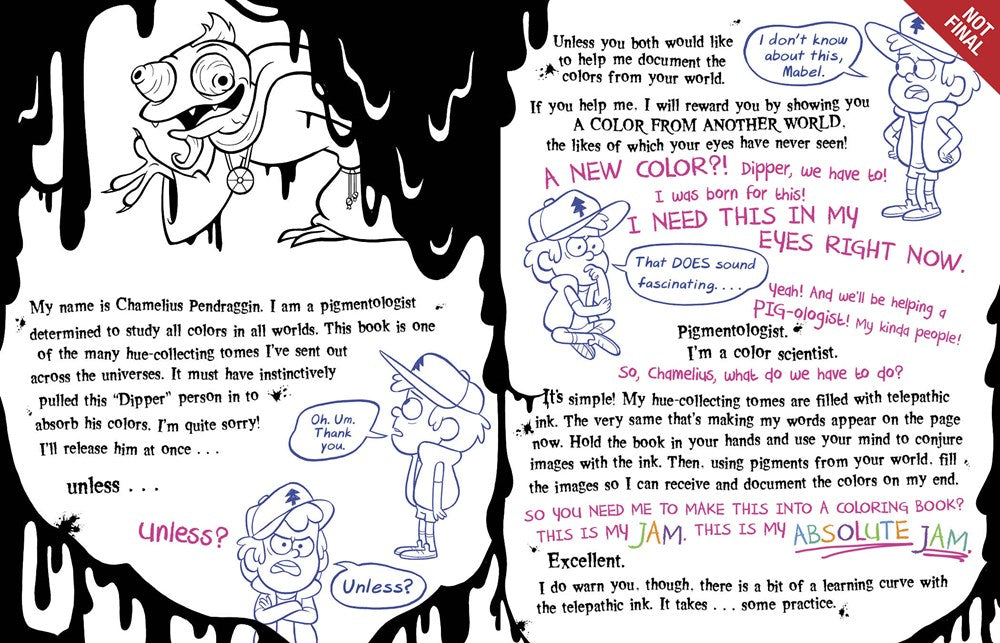 My name is Chamelius Pendraggin. I am a pigmentologist
determined to study all colors in all worlds. This book is one
of the many hue-collecting tomes I've sent out
across the universes. It must have instinctively
pulled this "Dipper" person in to
absorb his colors. I'm quite sorry!
I'll release him at once . . .
Oh. Um.
Thank
you.
unless . . .
Unless?
Unless?
NOT
FINAL
Unless you both would like
to help me document the
colors from your world.
I don't know
about this,
Mabel.
If you help me, I will reward you by showing you
A COLOR FROM ANOTHER WORLD,
the likes of which your eyes have never seen!
A NEW COLOR?! Dipper, we have to!
I was born for this!
I NEED THIS IN MY
EYES RIGHT NOW.
That DOES sound
fascinating. . . .
Yeah! And we'll be helping a
PIG-ologist! My kinda people!
Pigmentologist.
I'm a color scientist.
So, Chamelius, what do we have to do?
It's simple! My hue-collecting tomes are filled with telepathic
ink. The very same that's making my words appear on the page
now. Hold the book in your hands and use your mind to conjure
images with the ink. Then, using pigments from your world, fill
the images so I can receive and document the colors on my end.
SO YOU NEED ME TO MAKE THIS INTO A COLORING BOOK?
THIS IS MY JAM. THIS IS MY ABSOLUTE JAM.
Excellent.
I do warn you, though, there is a bit of a learning curve with
the telepathic ink. It takes . . . some practice.